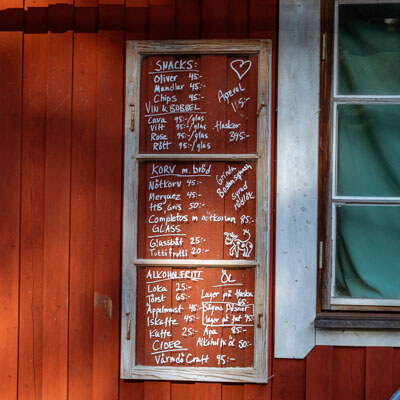 SNACKS:
Oliver 45:-
Mandlar 45:-
Chips 45:-
Aperol
115:-
VIN & BUBBEL
Cava 95:-/glas
Vitt 95:-/glas
Rose 95:-/glas
Rött 95:-/glas
Flaskor
395:-
KORV m. bröd
Nötkorv 45:-
Merguez 45:-
HB Gris 50:-
Completos m nötkorv 85:-
rödlök
GLASS
Glassbåt 25:-
Tuttifrutti 20:-
ALKOHOLFRITT
Loka 25:-
Törst 65:-
Äppelmust 45:-
Iskaffe 45:-
Kaffe 25:-
CIDER
Värmdö Craft 95:-
ÖL
Lager på flaska
65:-
Lager på fat 95:-
Apa 85:-
Alkoholfri öl 50:-